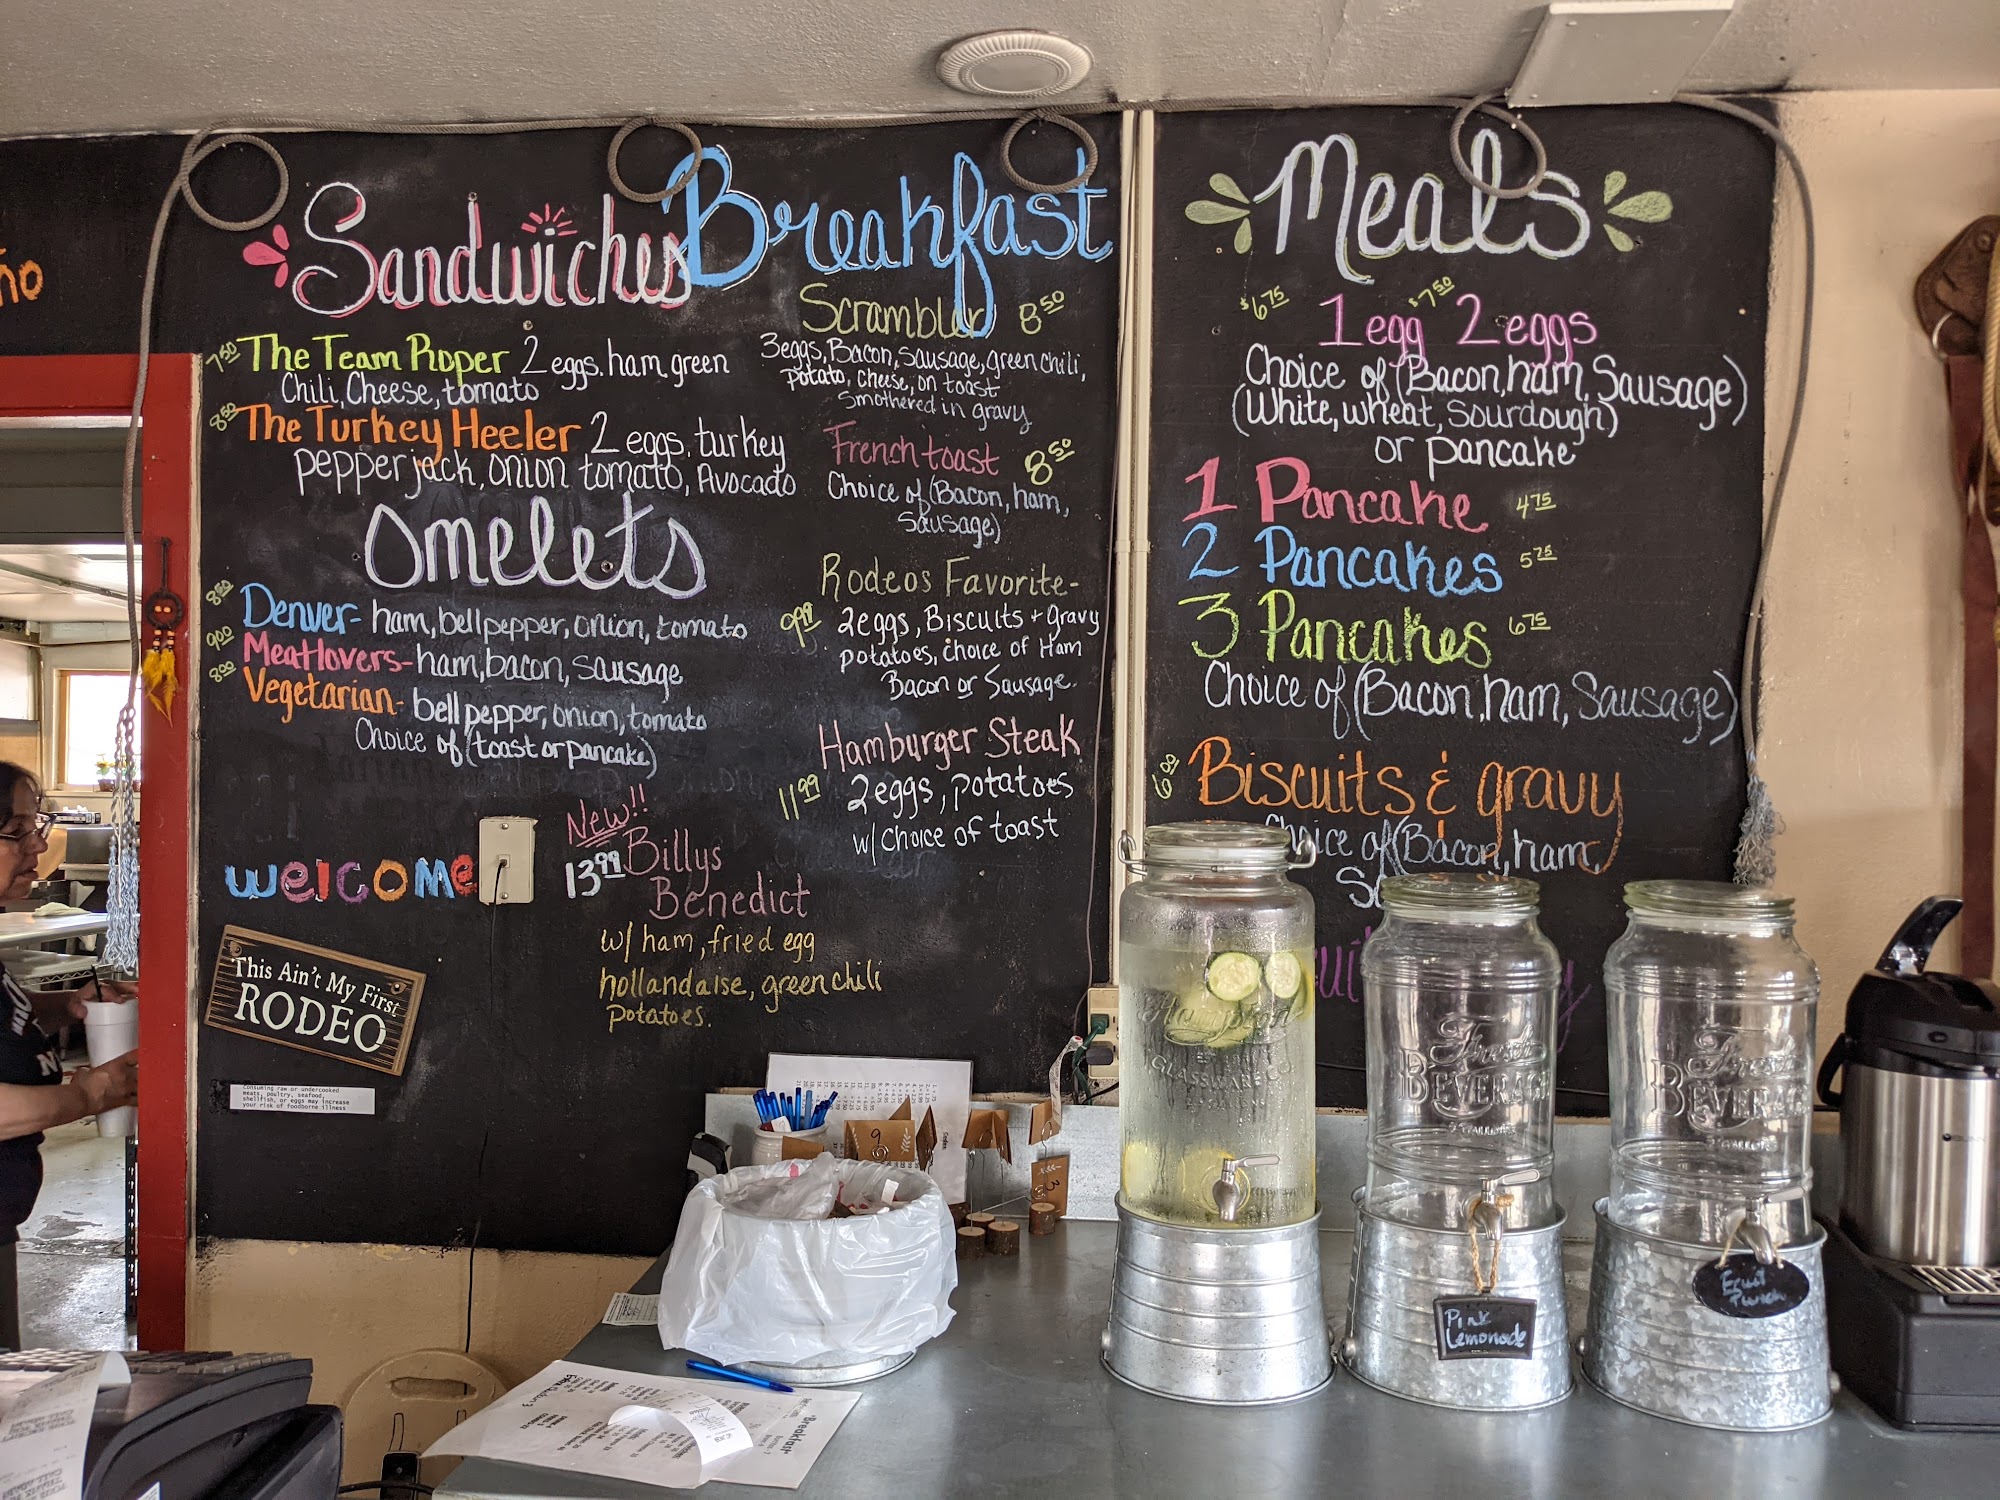 ño
Sandwiches
7.50 The Team Roper 2 eggs. ham, green
Chili, Cheese, tomato
8.50 The Turkey Heeler 2 eggs, turkey
pepper jack, onion tomato, Avocado
Omelets
8.50 Denver- ham, bell pepper, onion, tomato
9.00 Meatlovers- ham, bacon, sausage
8.00 Vegetarian- bell pepper, onion, tomato
Choice of (toast or pancake)
welcome
This Ain't My First
RODEO
Consuming raw or undercooked
meats, poultry, seafood,
shellfish, or eggs may increase
your risk of foodborne illness
New!!
13.99 Billys
Benedict
w/ ham, fried egg
hollandaise, green chili
potatoes.
Breakfast
Scrambler 8.50
3 eggs, Bacon, Sausage, green chili,
potato, cheese, on toast
Smothered in gravy
French toast 8.50
Choice of (Bacon, ham,
Sausage)
Rodeos Favorite-
9.99 2 eggs, Biscuits + gravy
potatoes, choice of Ham
Bacon or Sausage.
Hamburger Steak
11.99 2 eggs, potatoes
w/ choice of toast
Meals
$6.75 1 egg $7.50 2 eggs
Choice of (Bacon, ham, Sausage)
(White, wheat, Sourdough)
or pancake
1 Pancake 4.75
2 Pancakes 5.75
3 Pancakes 6.75
Choice of (Bacon, ham, Sausage)
6.00 Biscuits & gravy
Choice of (Bacon, ham,
9
3
GLASSWARE CO.
Fresh
BEVERAGE
Fresh
BEVERAGE
Pink
Lemonade
Fruit
Breakfast